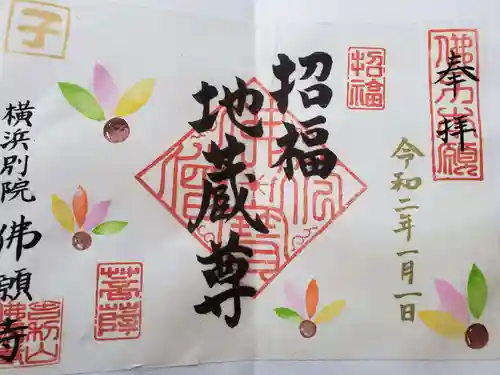 奉拝
令和二年一月一日
招福
招福
地蔵尊
子
菩薩
横浜別院
佛願寺